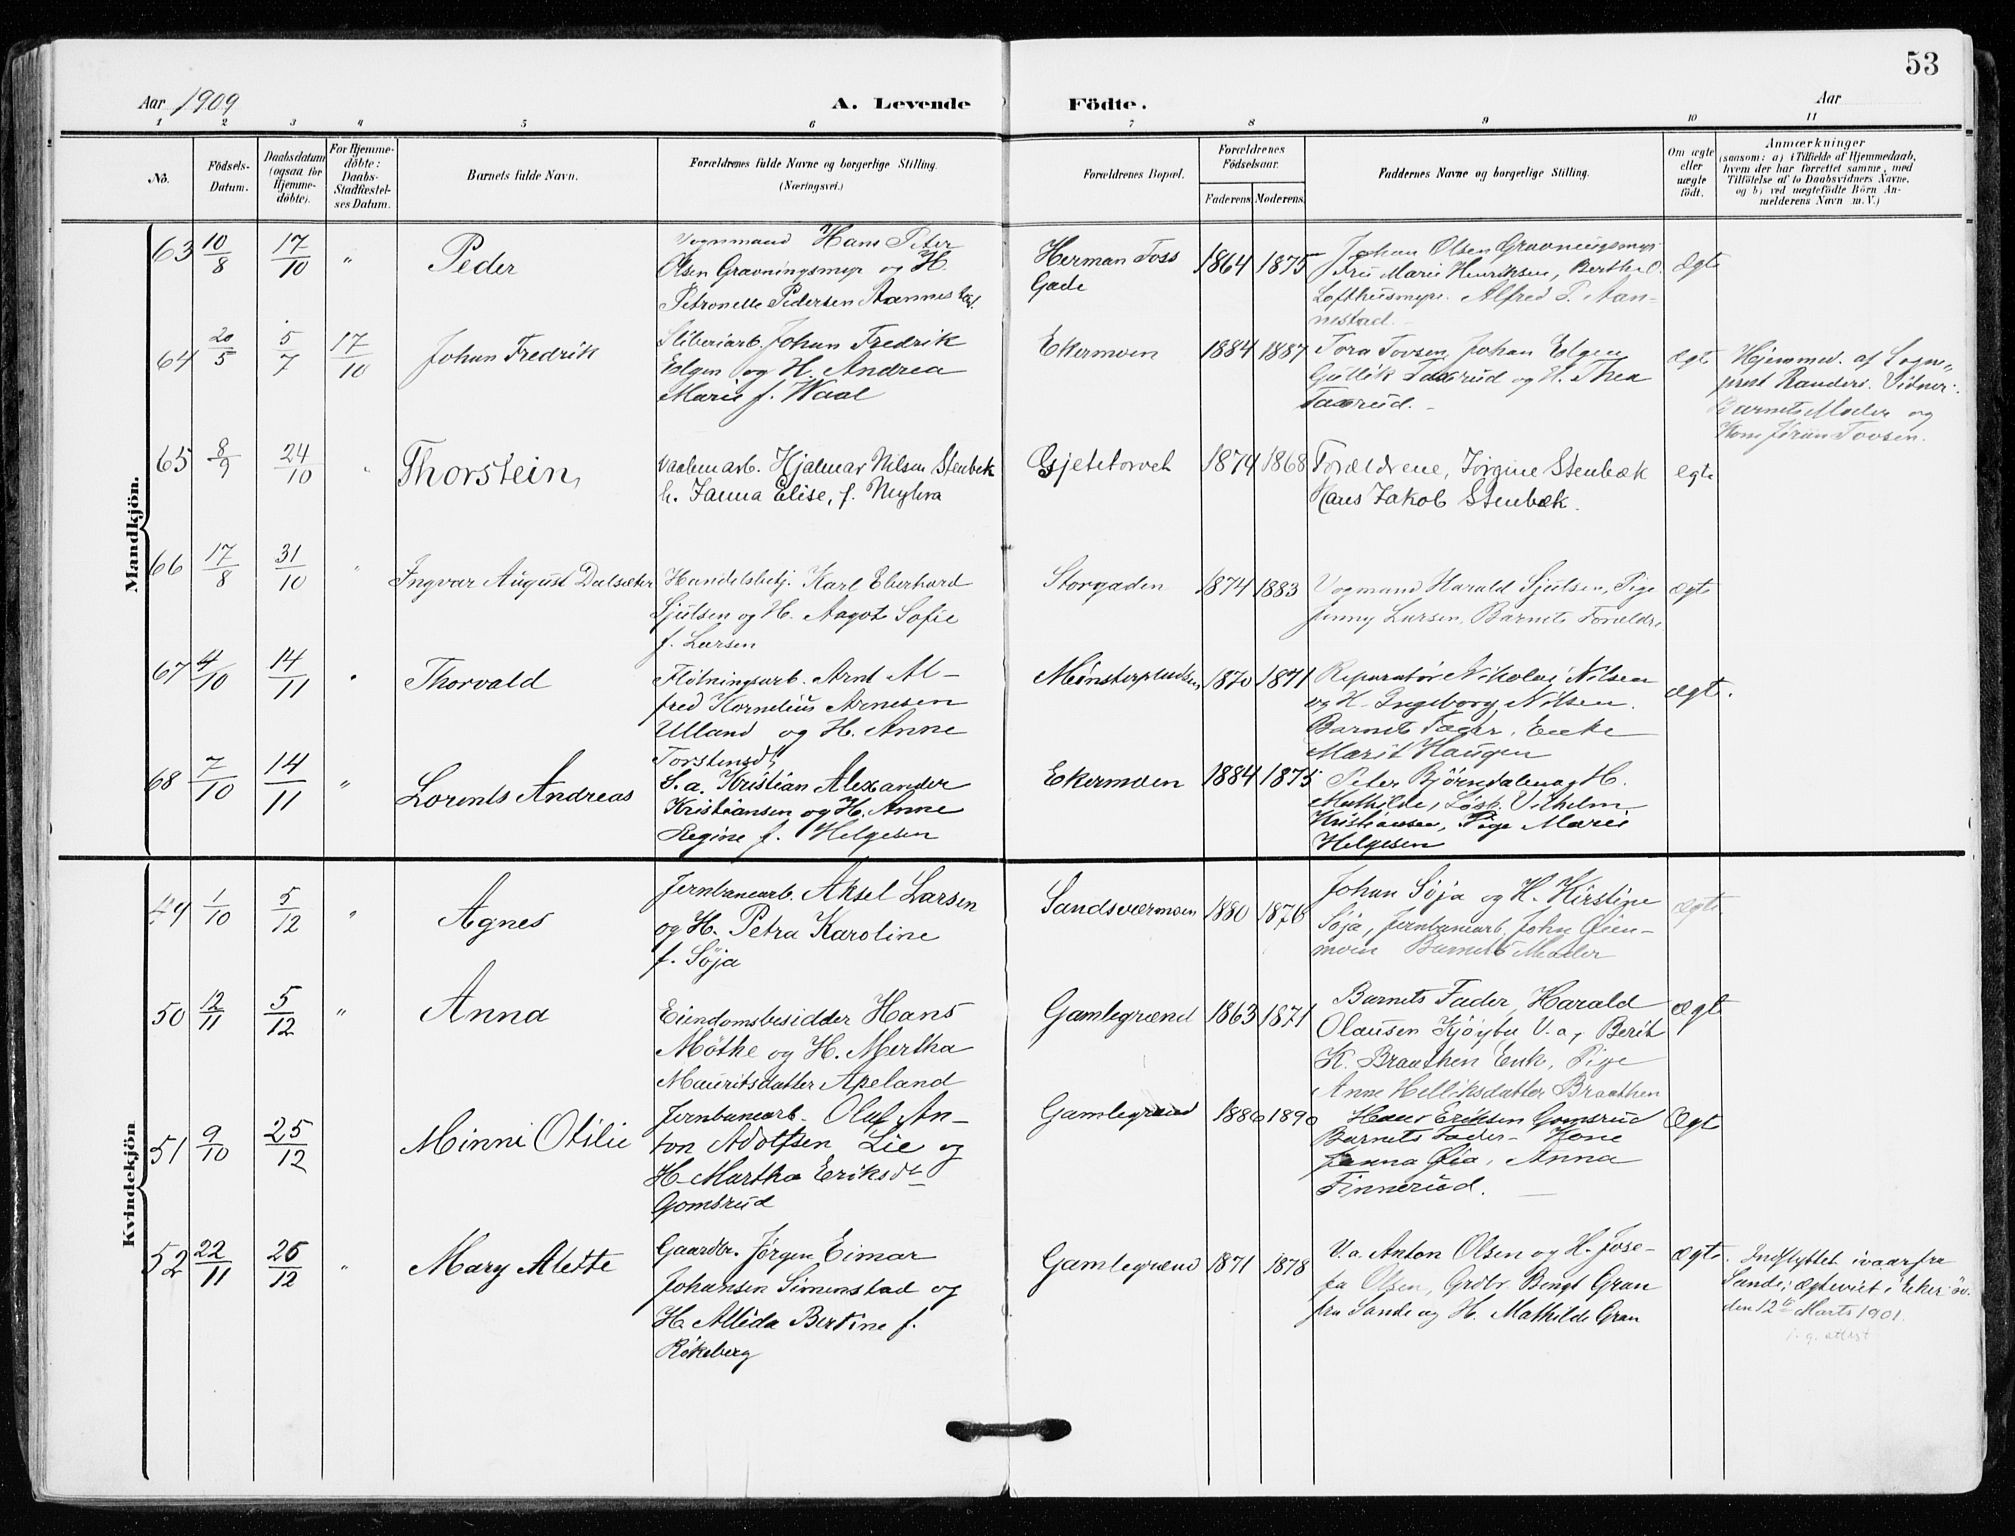 53
Aar 1909 A. Levende Födte. Aar
1 2 3 4 5 6 7 8 9 10 11
No. Födsels-Datum. Daabsdatum (ogsaa for Hjemmedöbte). For Hjemmedöbte: Daabs-Stadfæstelses Datum. Barnets fulde Navn. Forældrenes fulde Navne og borgerlige Stilling. (Næringsvei.) Forældrenes Bopæl. Forældrenes Födselsaar. Faderens Moderens. Faddernes Navne og borgerlige Stilling. Om ægte eller uægte födt. Anmærkninger (saasom: a) i Tilfælde af Hjemmedaab, hvem der har forrettet samme, med Tilföielse af to Daabsvidners Navne, og b) ved uægtefödte Börn Anmelderens Navn m. V.)
Mandkjön.
63 10/8 17/10 " Peder
Vognmand Hans Peter
Olsen Gravningsmyr og H.
Petronelle Pedersen Aannestad.
Herman Foss
Gade
1864 1875
Johan Olsen Gravningsmyr
Fru Marie Henriksen, Berthe O.
Lofthusmyr. Alfred P. Aan-
nestad.
Ægte
64 20/5 5/7 17/10 Johan Fredrik
Sliberiarb. Johan Fredrik
Elgen og H. Andrea
Marie f. Waal
Ekermoen 1884 1887
Tora Tovsen, Johan Elgen
Gullik Taxrud og H. Thea
Taxrud.
ægte
Hjemmed. af Sogne-
prest Randers. Vidner:
Barnets Moder og
Kone Jøran Tovsen.
65 8/9 24/10 " Thorstein,
Vaabenarb. Hjalmar Nilsen Stenbæk
h. Janna Elise, f. Myhra
Gjetetorvet 1874 1868
Forældrene, Jørgine Stenbæk
Hans Jakob Stenbæk.
ægte
66 17/8 31/10 " Ingvar August Dalsæter
Handelsbetj. Karl Eberhard
Sjulsen og H. Aagot Sofie
f. Larsen
Storgaden 1874 1883
Vogmand Harald Sjulsen, Pige
Jenny Larsen, Barnets Forældre
ægte
67 4/10 14/11 " Thorvald
Fløtningsarb. Arnt Al-
fred Kornelius Arnesen
Ulland og H. Anne
Torstensd.
Mønsterpladsen 1870 1871
Reparatør Nikolai Nilsen
og H. Ingeborg Nilsen.
Barnets Fader, Enke
Marit Haugen
ægte.
68 7/10 14/11 " Lorents Andreas
S. a. Kristian Alexander
Kristiansen og H. Anne
Regine f. Helgesen
Ekermoen 1884 1875
Peter Bjørndalen og H.
Mathilde, Løsk. Vilhelm
Kristiansen, Pige Marie
Helgesen
Kvindekjön
49 1/10 5/12 " Agnes
Jernbanearb. Aksel Larsen
og H. Petra Karoline
f. Søja
Sandsværmoen 1880 1876
Johan Søja og H. Kirstine
Søja, Jernbanearb. John Øien-
moen Barnets Moder
Ægte
50 12/11 5/12 " Anna
Eiendomsbesidder Hans
Møthe og H. Mertha
Mauritsdatter Apeland
Gamlegrænd 1863 1871
Barnets Fader, Harald
Olausen Kjøybu V. a, Berit
K. Braathen Enke, Pige
Anne Helliksdatter Braathen
Ægte
51 9/10 25/12 Minni Otilie
Jernbanearb. Olaf An-
ton Adolfsen Lie og
H. Martha Eriksdt
Gomsrud
Gamlegrænd 1886 1890
Hans Eriksen Gomsrud
Barnets Fader - Kone
Janna Øia, Anna
Finnerud.
Ægte
52 22/11 26/12 " Mary Alette
Gaardbr. Jørgen Eimar
Johansen Simenstad og
H. Allida Bertine f.
Røkeberg
Gamlegrænd 1871 1878
V.a. Anton Olsen og H. Jose-
fa Olsen, Grdbr. Bengt Gran
fra Sande og H. Mathilde Gran
ægte.
Indflyttet ivaar fra
Sande; ægteviet i Eker
den 12te Marts 1901.